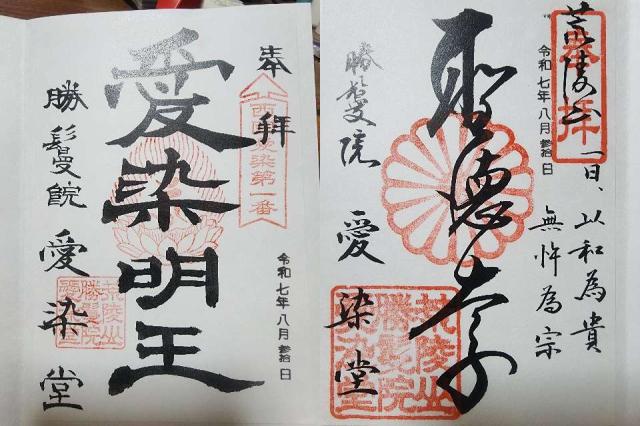 奉拝
西国愛染第一番
愛染明王
令和七年八月参拾日
勝鬘院 愛染堂
荒陵山
勝鬘院
愛染堂
荒陵山
奉拝
一日、以和為貴
無忤為宗
令和七年八月参拾日
聖徳太子
勝鬘院 愛染堂
荒陵山
勝鬘院
愛染堂